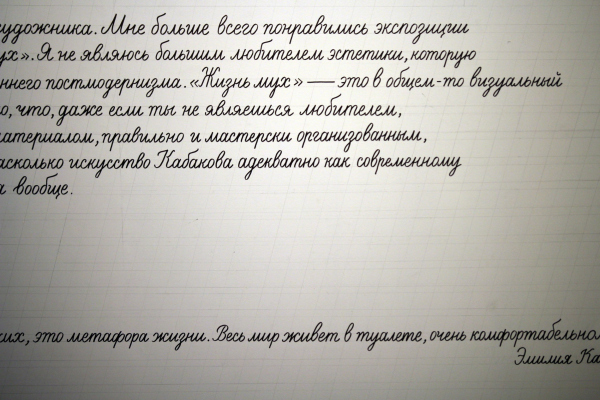 художника. Мне больше всего понравились экспозиции
ух». Я не являюсь большим любителем эстетики, которую
ннего постмодернизма. «Жизнь мух» — это в общем-то визуальный
о, что, даже если ты не являешься любителем,
материалом, правильно и мастерски организованным,
насколько искусство Кабакова адекватно как современному
а вообще.
ких, это метафора жизни. Весь мир живет в туалете, очень комфортабельно
Эмилия Ка